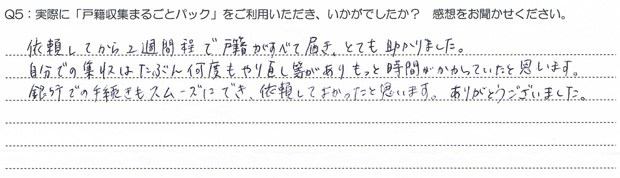 Q5：実際に「戸籍収集まるごとパック」をご利用いただき、いかがでしたか？　感想をお聞かせください。
依頼してから2週間程で戸籍がすべて届き、とても助かりました。
自分での集収はたぶん何度もやり直し等がありもっと時間がかかっていたと思います。
銀行での手続きもスムーズにでき、依頼してよかったと思います。ありがとうございました。